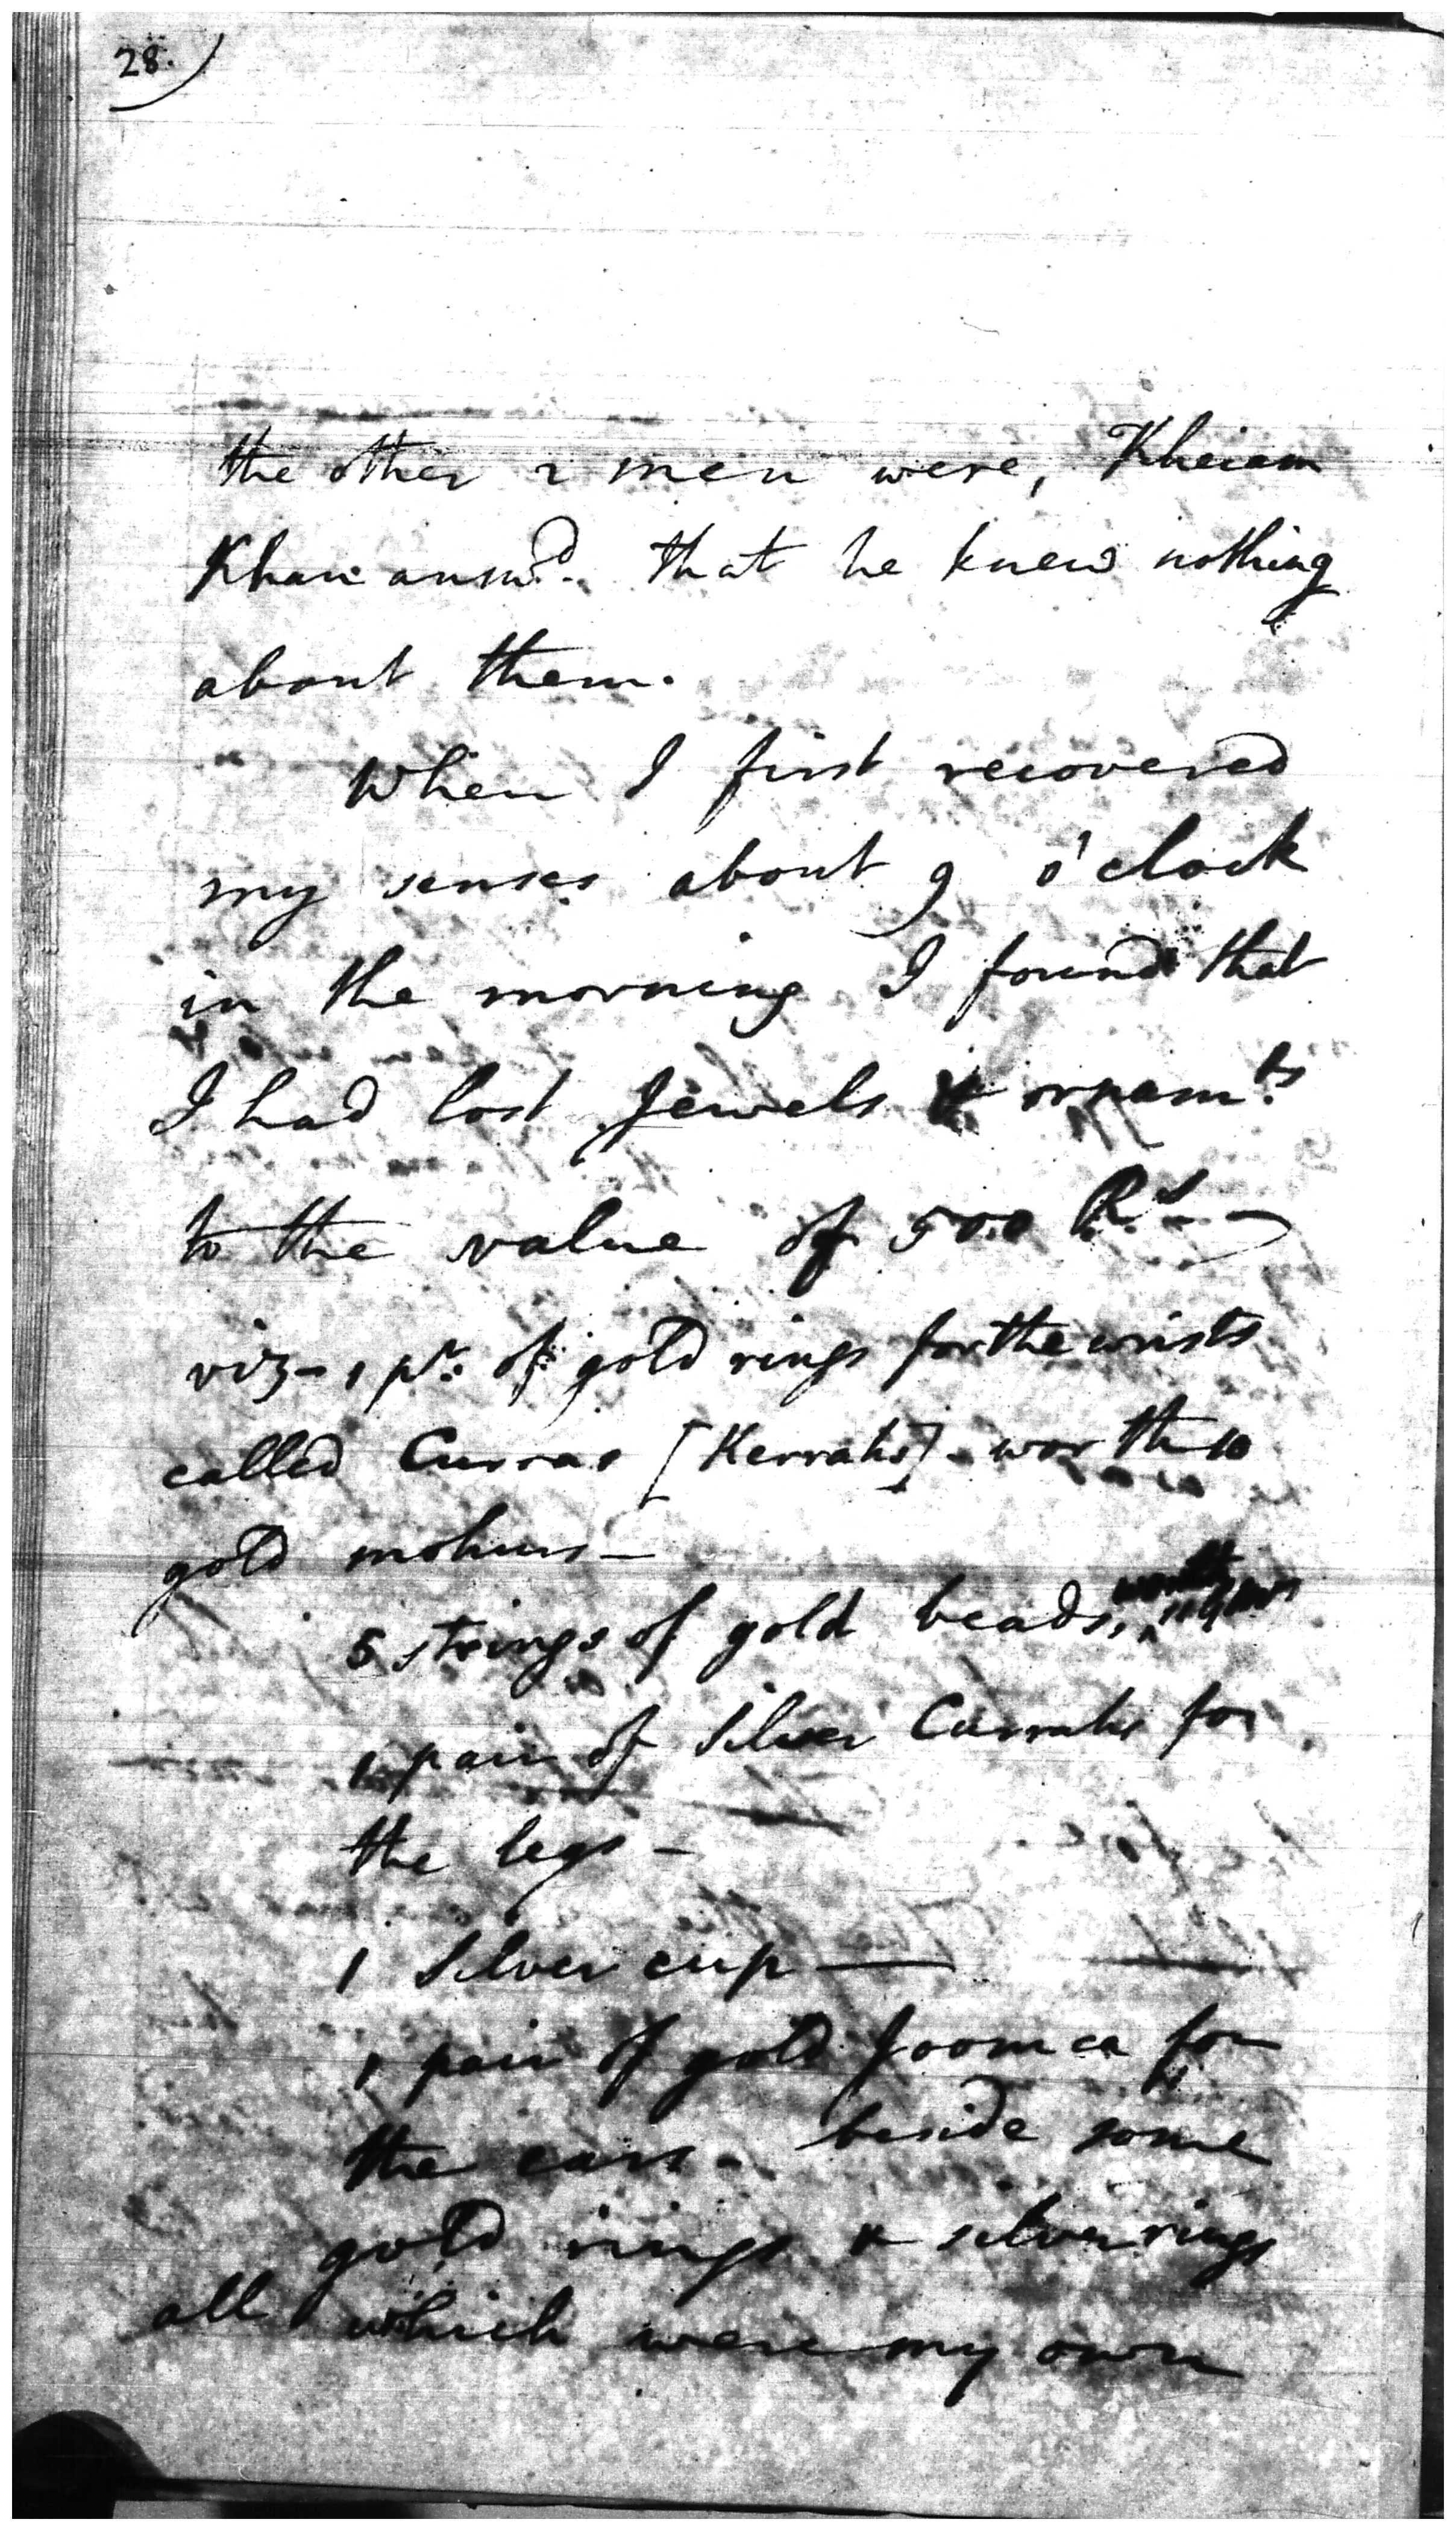 28.
the other 2 men were, Kheiam
Khan answd. that he knew nothing
about them.
When I first recovered
my senses about 9 o'clock
in the morning I found that
I had lost Jewels & ornamts.
to the value of 500 Rs. -
viz - 1 pr. of gold rings for the wrists
called Curras [Kerrahs] - worth 10
gold mohurs -
5 strings of gold beads, worth
1 pair of Silver Currahs for
the legs -
1 Silver cup -
1 pair of gold Joomca for
the ears - beside some
gold rings & silver rings
all which were my own